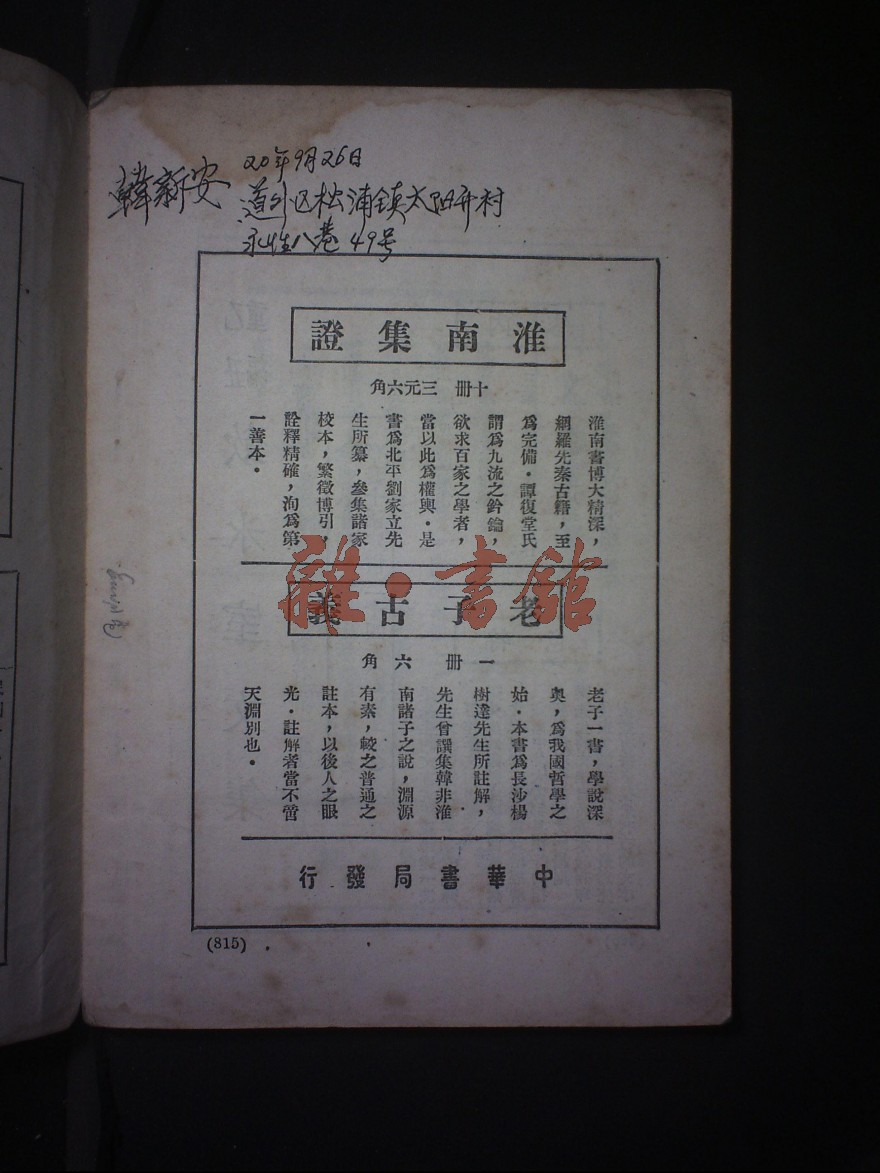 韓新安
20年9月26日
道外区松浦镇太阳升村
永胜八巷 49号
淮南集證
十册 三元六角
淮南書博大精深，
網羅先秦古籍，至
爲完備・譚復堂氏
謂爲九流之鈐鑰，
欲求百家之學者，
當以此爲權輿・是
書爲北平劉家立先
生所纂，參集諸家
校本，繁徵博引，
詮釋精確，洵爲第
一善本・
雜・書館
老子古義
一册 六角
老子一書，學說深
奥，爲我國哲學之
始・本書爲長沙楊
樹達先生所註解，
先生曾譔集韓非淮
南諸子之說，淵源
有素，較之普通之
註本，以後人之眼
光・註解者當不啻
天淵別也・
中華書局發行
(815)